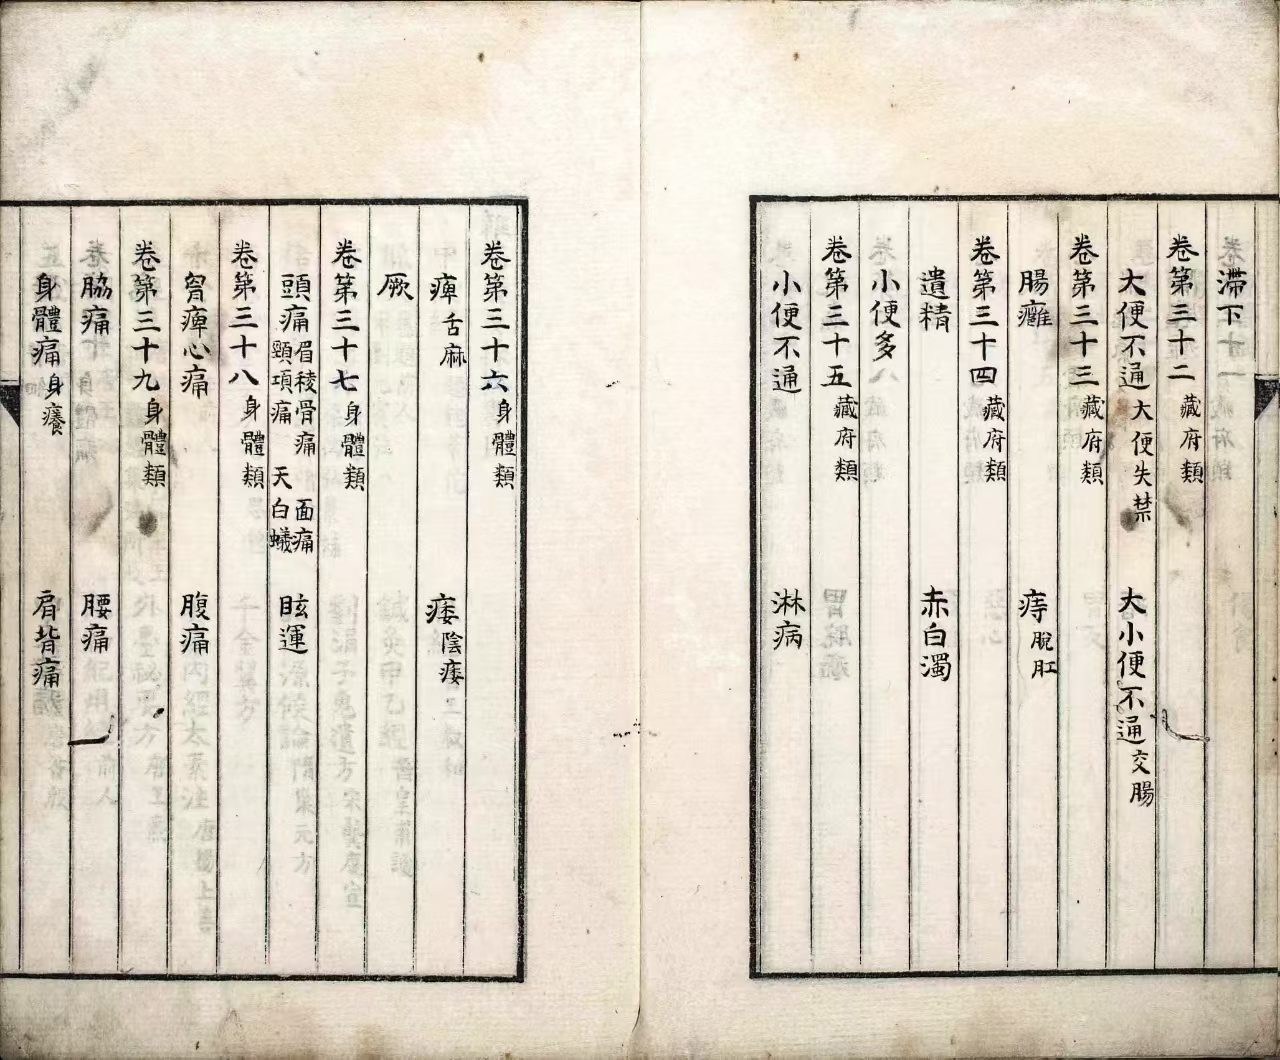 滯下
卷第三十二 藏府類
大便不通 大便失禁 大小便不通 交腸
卷第三十三 藏府類
腸癰 痔 脫肛
卷第三十四 藏府類
遺精 赤白濁
小便多
卷第三十五 藏府類
小便不通 淋病
卷第三十六 身體類
痺 舌麻 痿 陰痿
厥
卷第三十七 身體類
頭痛 眉稜骨痛 面痛 頸項痛 天白蟻 眩運
卷第三十八 身體類
胷痺心痛 腹痛
卷第三十九 身體類
脇痛 腰痛
身體痛 身癢 肩背痛